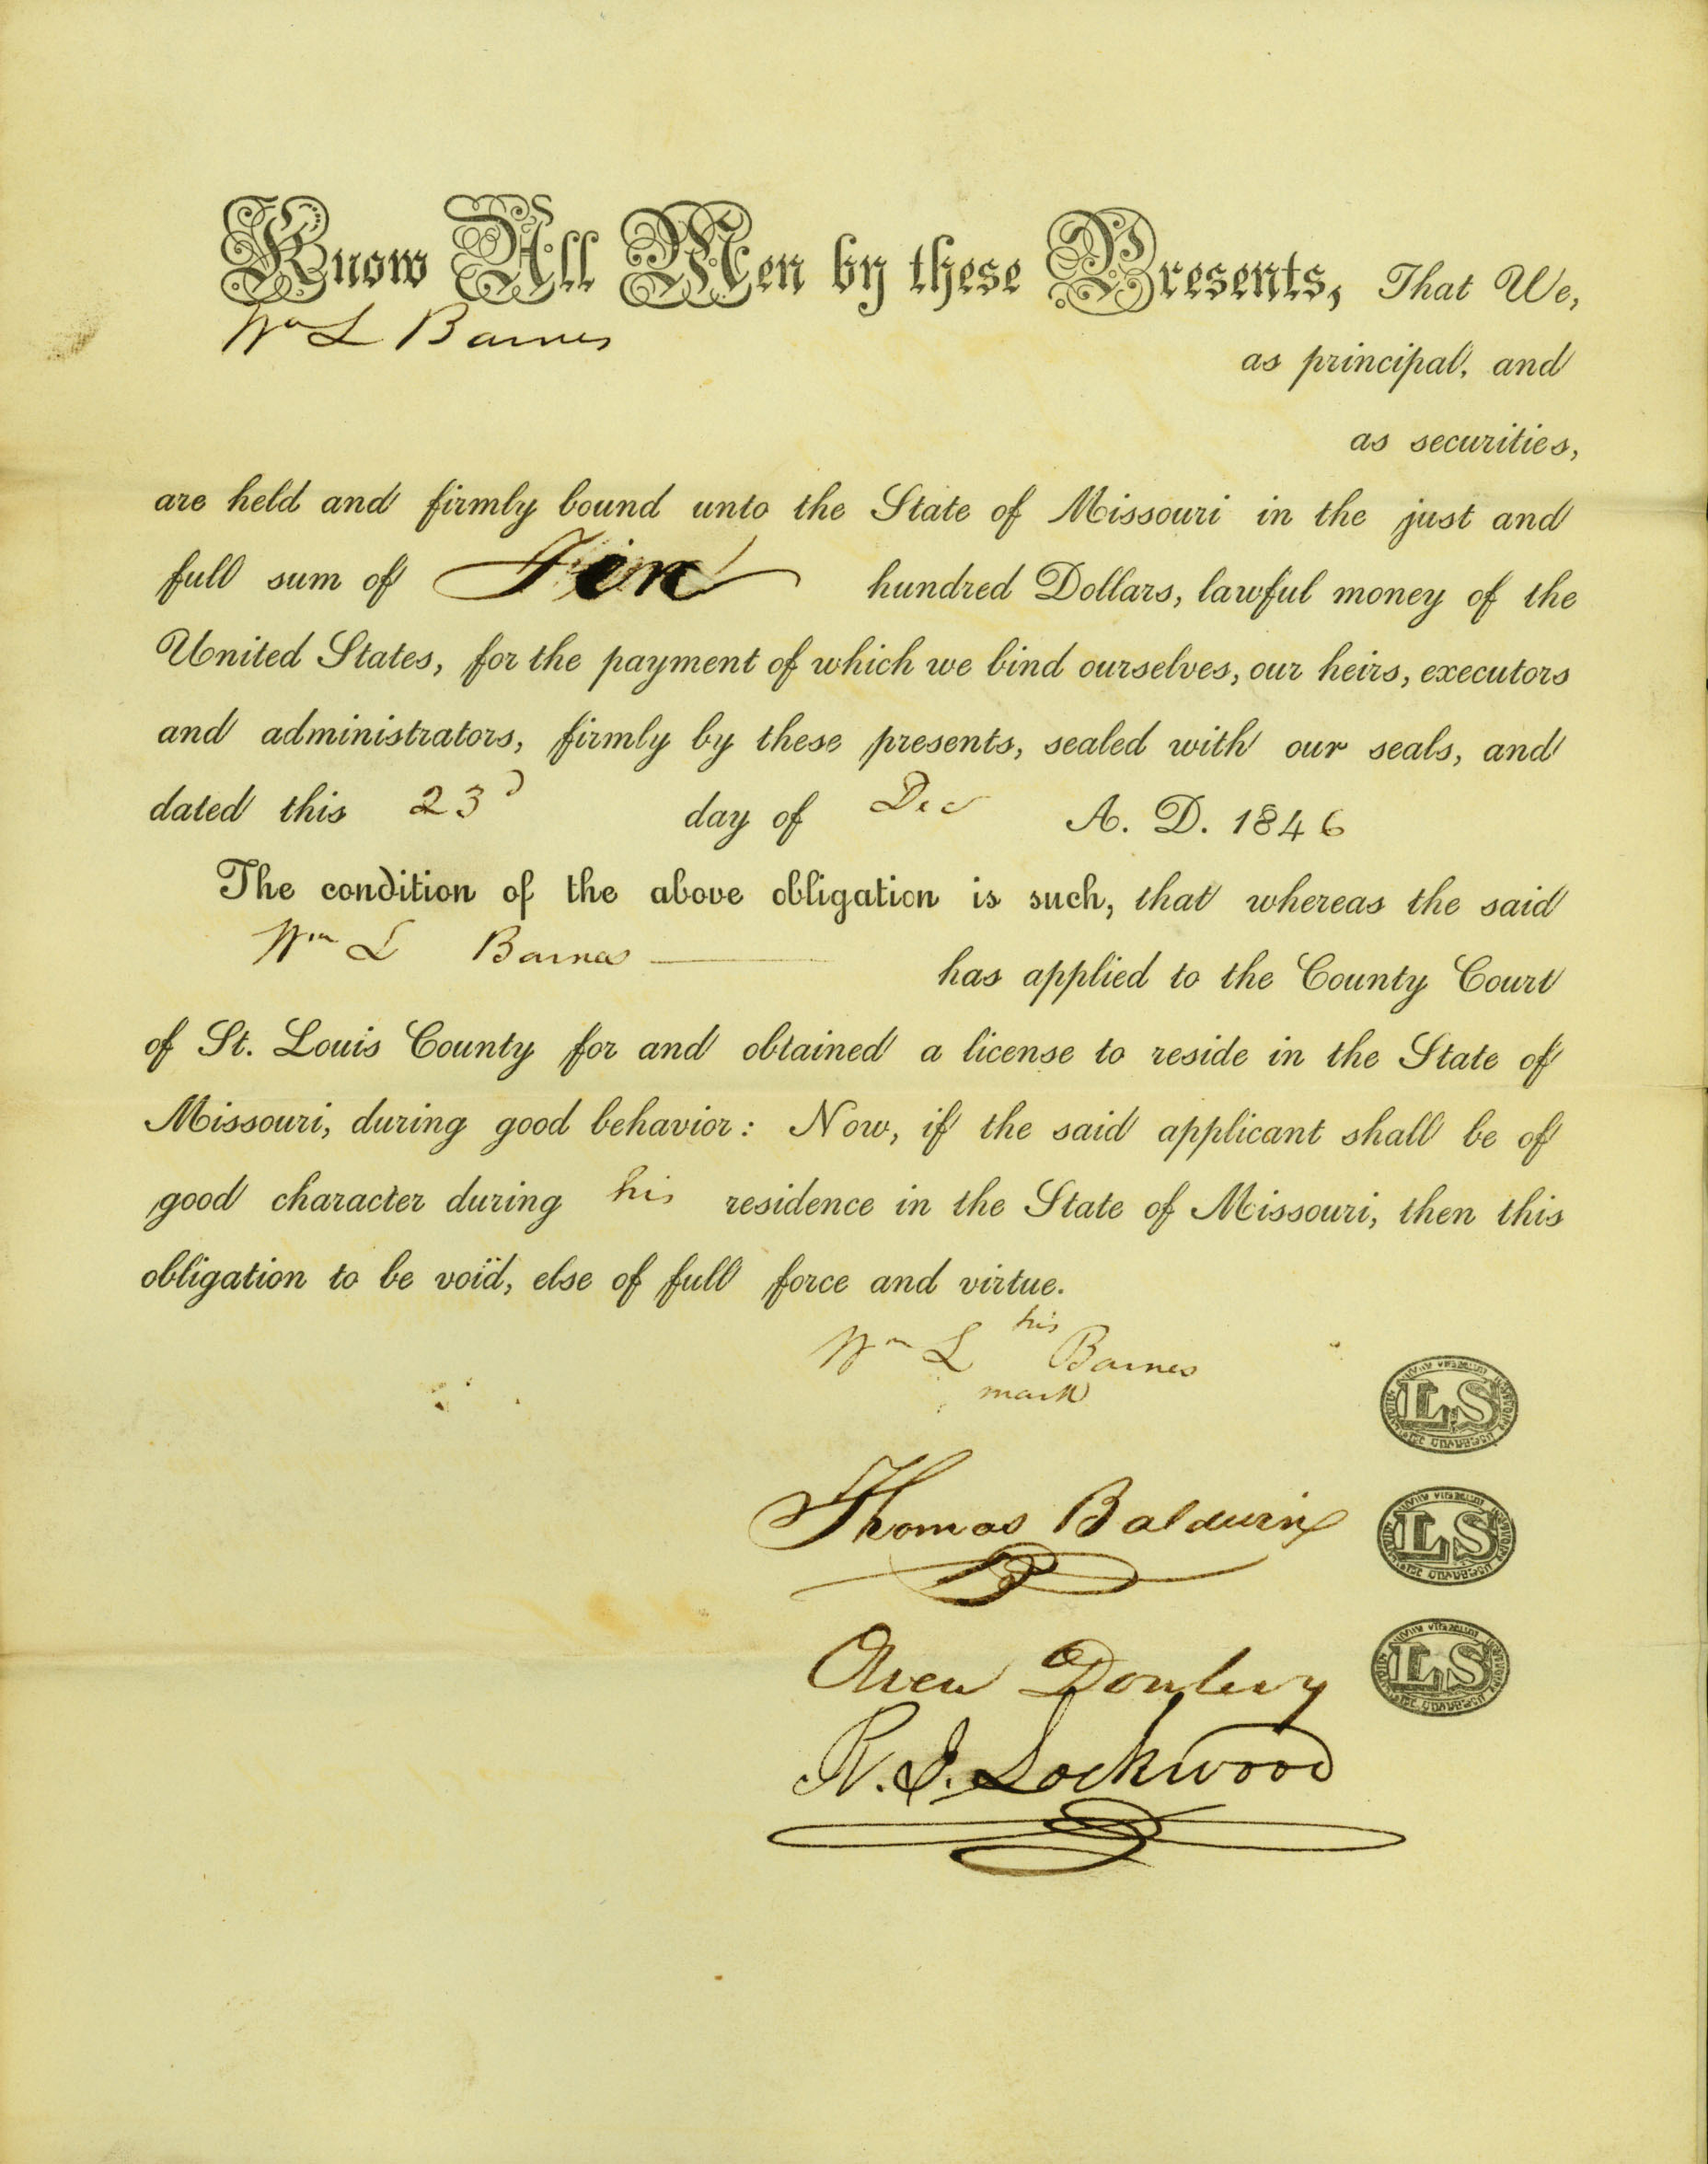 Know All Men by these Presents, That We,
Wm L Barnes
as principal, and
as securities,
are held and firmly bound unto the State of Missouri in the just and
full sum of Ten hundred Dollars, lawful money of the
United States, for the payment of which we bind ourselves, our heirs, executors
and administrators, firmly by these presents, sealed with our seals, and
dated this 23d day of Dec A. D. 1846
The condition of the above obligation is such, that whereas the said
Wm L Barnes has applied to the County Court
of St. Louis County for and obtained a license to reside in the State of
Missouri, during good behavior: Now, if the said applicant shall be of
good character during his residence in the State of Missouri, then this
obligation to be void, else of full force and virtue.
his
Wm L Barnes
mark
LS
Thomas Baldwin
LS
Owen
LS
R. J. Lockwood